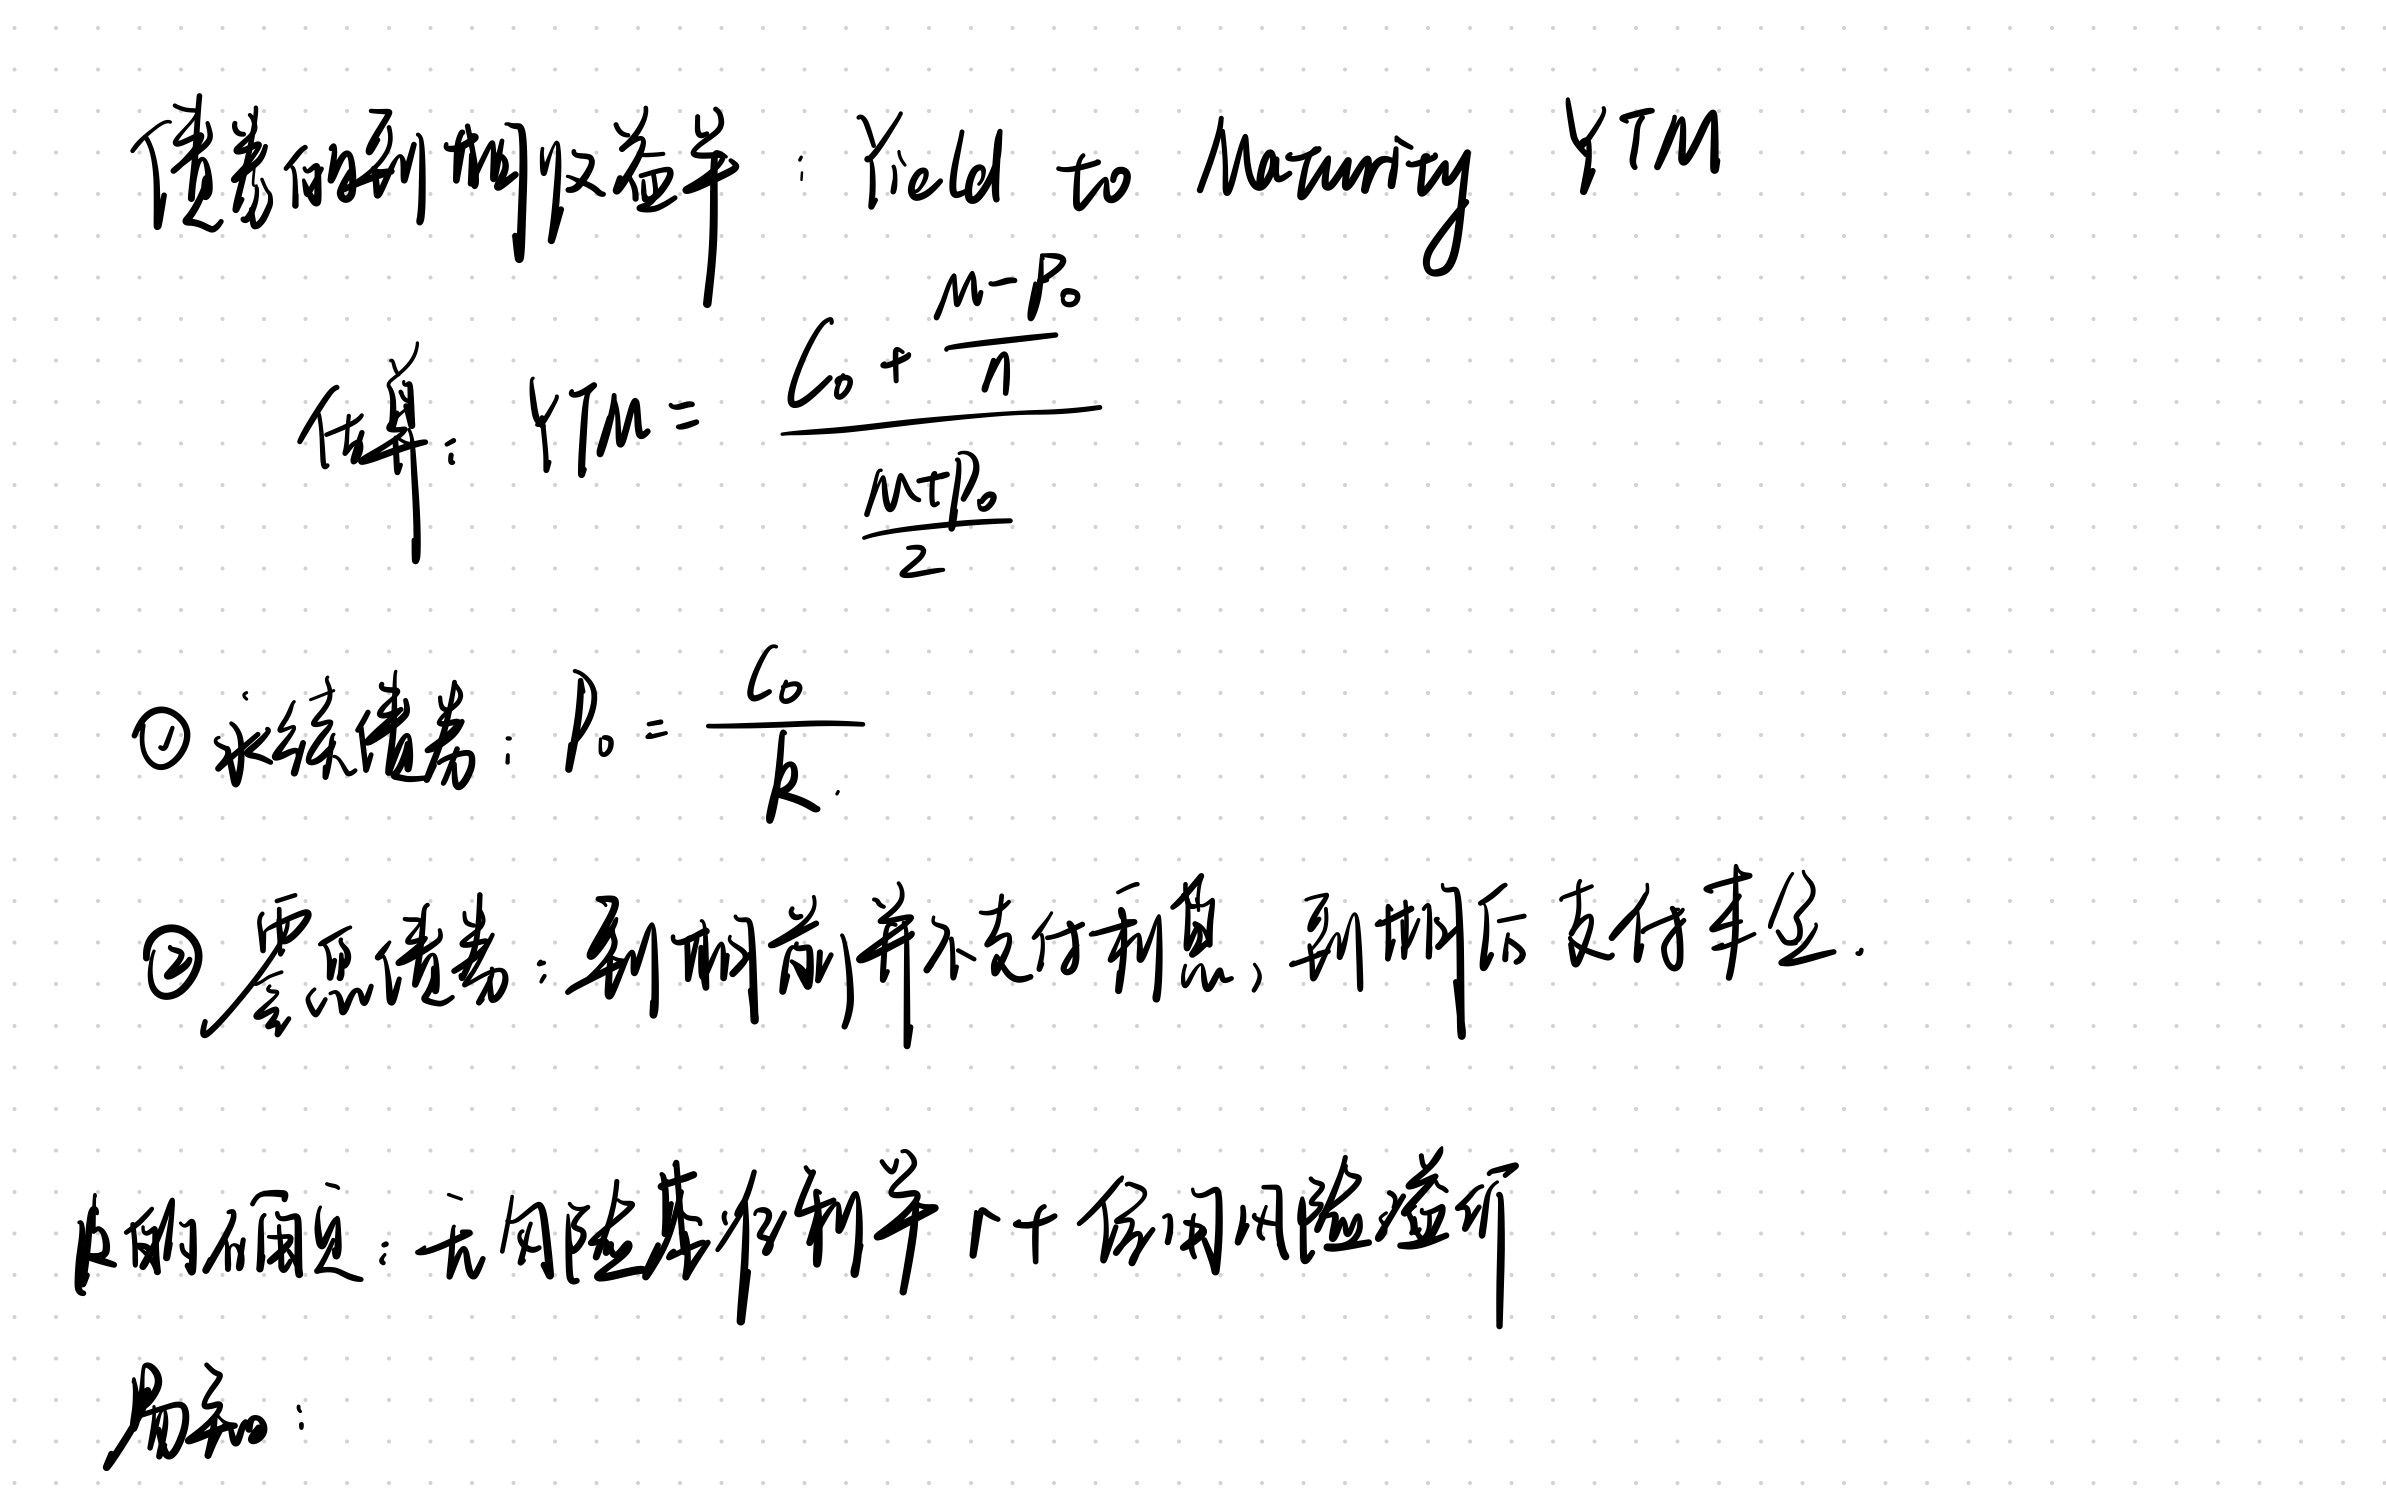 债券的到期收益率：Yield to Maturity YTM
估算：YTM = (C₀ + (M-P₀)/n) / ((M+P₀)/2)
① 永续债券：P₀ = C₀/k.
② 零息债券：到期前并不支付利息、到期后支付本金.
k的确定：无风险 公司风险溢酬
股利：